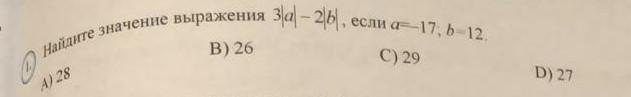 1. Найдите значение выражения 3|a| − 2|b|, если a=−17; b=12.
A) 28 B) 26 C) 29 D) 27